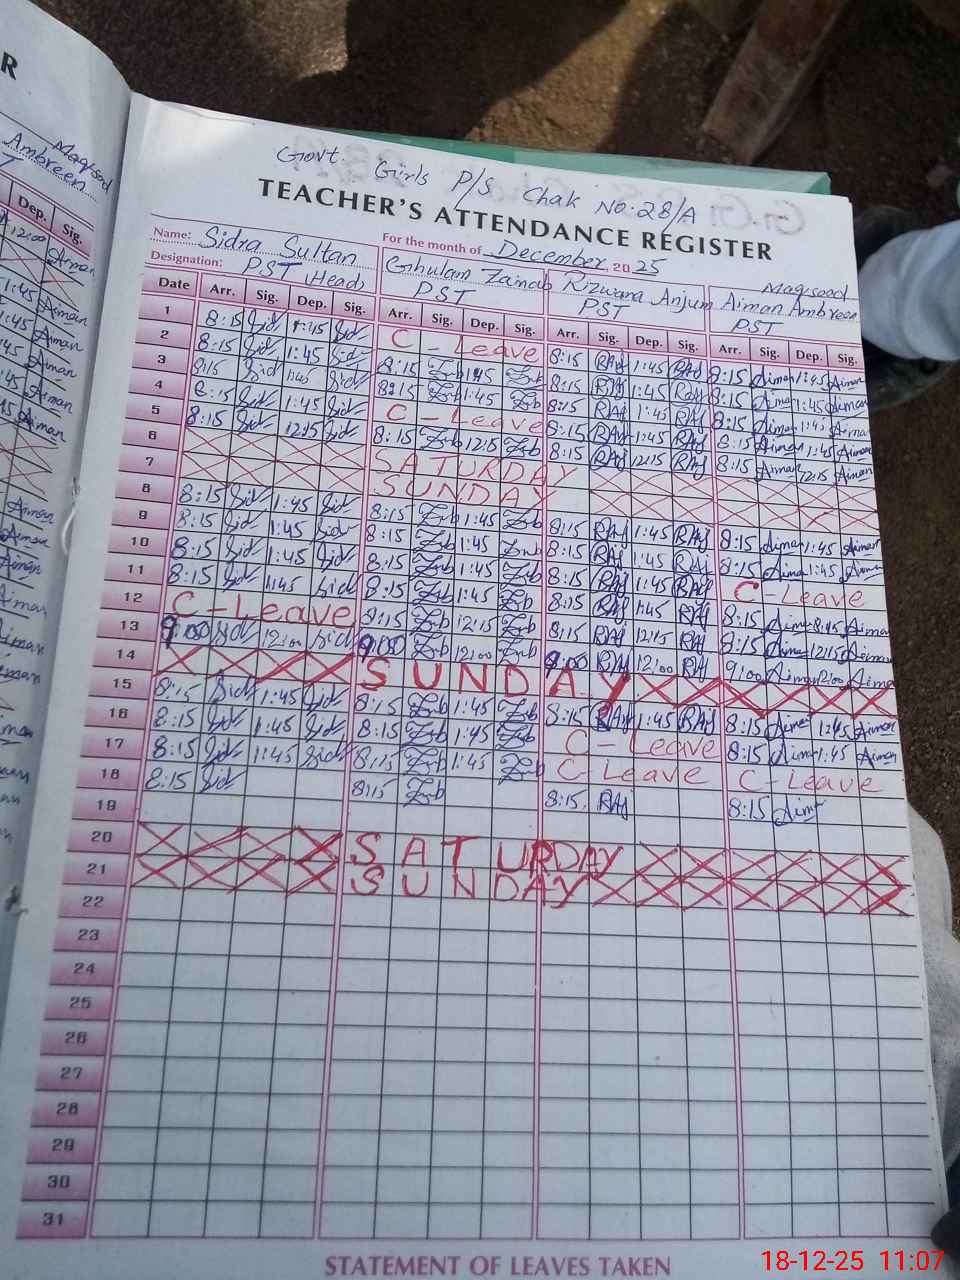 R
Maqsood
Ambreen
T
Dep. Sig.
12:00 Aiman
1:45 Aiman
Govt. Girls P/S Chak No:28/A
TEACHER'S ATTENDANCE REGISTER
Name: Sidra Sultan
For the month of December 2025
Designation: PST (Head)
Ghulam Zainab PST
Rizwana Anjum PST
Maqsood
Aiman Ambreen
PST
Date Arr. Sig. Dep. Sig. Arr. Sig. Dep. Sig. Arr. Sig. Dep. Sig. Arr. Sig. Dep. Sig.
1 8:15 Sid 1:45 Sid C - Leave 8:15 RAj 1:45 RAj 8:15 Aiman 1:45 Aiman
2 8:15 Sid 1:45 Sid 8:15 Znb 1:45 Znb 8:15 RAj 1:45 RAj 8:15 Aiman 1:45 Aiman
3 8:15 Sid 1:45 Sid 8:15 Znb 1:45 Znb 8:15 RAj 1:45 RAj 8:15 Aiman 1:45 Aiman
4 8:15 Sid 1:45 Sid C - Leave 8:15 RAj 1:45 RAj 8:15 Aiman 1:45 Aiman
5 8:15 Sid 12:15 Sid 8:15 Znb 12:15 Znb 8:15 RAj 12:15 RAj 8:15 Aiman 12:15 Aiman
6 SATURDAY
7 SUNDAY
8 8:15 Sid 1:45 Sid 8:15 Znb 1:45 Znb 8:15 RAj 1:45 RAj 8:15 Aiman 1:45 Aiman
9 8:15 Sid 1:45 Sid 8:15 Znb 1:45 Znb 8:15 RAj 1:45 RAj 8:15 Aiman 1:45 Aiman
10 8:15 Sid 1:45 Sid 8:15 Znb 1:45 Znb 8:15 RAj 1:45 RAj C - Leave
11 8:15 Sid 1:45 Sid 8:15 Znb 1:45 Znb 8:15 RAj 1:45 RAj 8:15 Aiman 1:45 Aiman
12 C - Leave 8:15 Znb 12:15 Znb 8:15 RAj 12:15 RAj 8:15 Aiman 12:15 Aiman
13 9:00 Sid 12:00 Sid 9:00 Znb 12:00 Znb 9:00 RAj 12:00 RAj 9:00 Aiman 12:00 Aiman
14 SUNDAY
15 8:15 Sid 1:45 Sid 8:15 Znb 1:45 Znb 8:15 RAj 1:45 RAj 8:15 Aiman 1:45 Aiman
16 8:15 Sid 1:45 Sid 8:15 Znb 1:45 Znb C - Leave 8:15 Aiman 1:45 Aiman
17 8:15 Sid 1:45 Sid 8:15 Znb 1:45 Znb C - Leave C - Leave
18 8:15 Sid 8:15 Znb 8:15 RAj 8:15 Aiman
19
20 SATURDAY
21 SUNDAY
22
23
24
25
26
27
28
29
30
31
STATEMENT OF LEAVES TAKEN
18-12-25 11:07